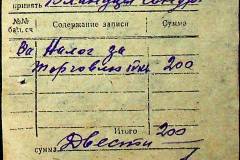 принять
№№ Содержание записи Сумма
бал. сч
За Налог за
торговлю 200
Итого 200
сумма Двести